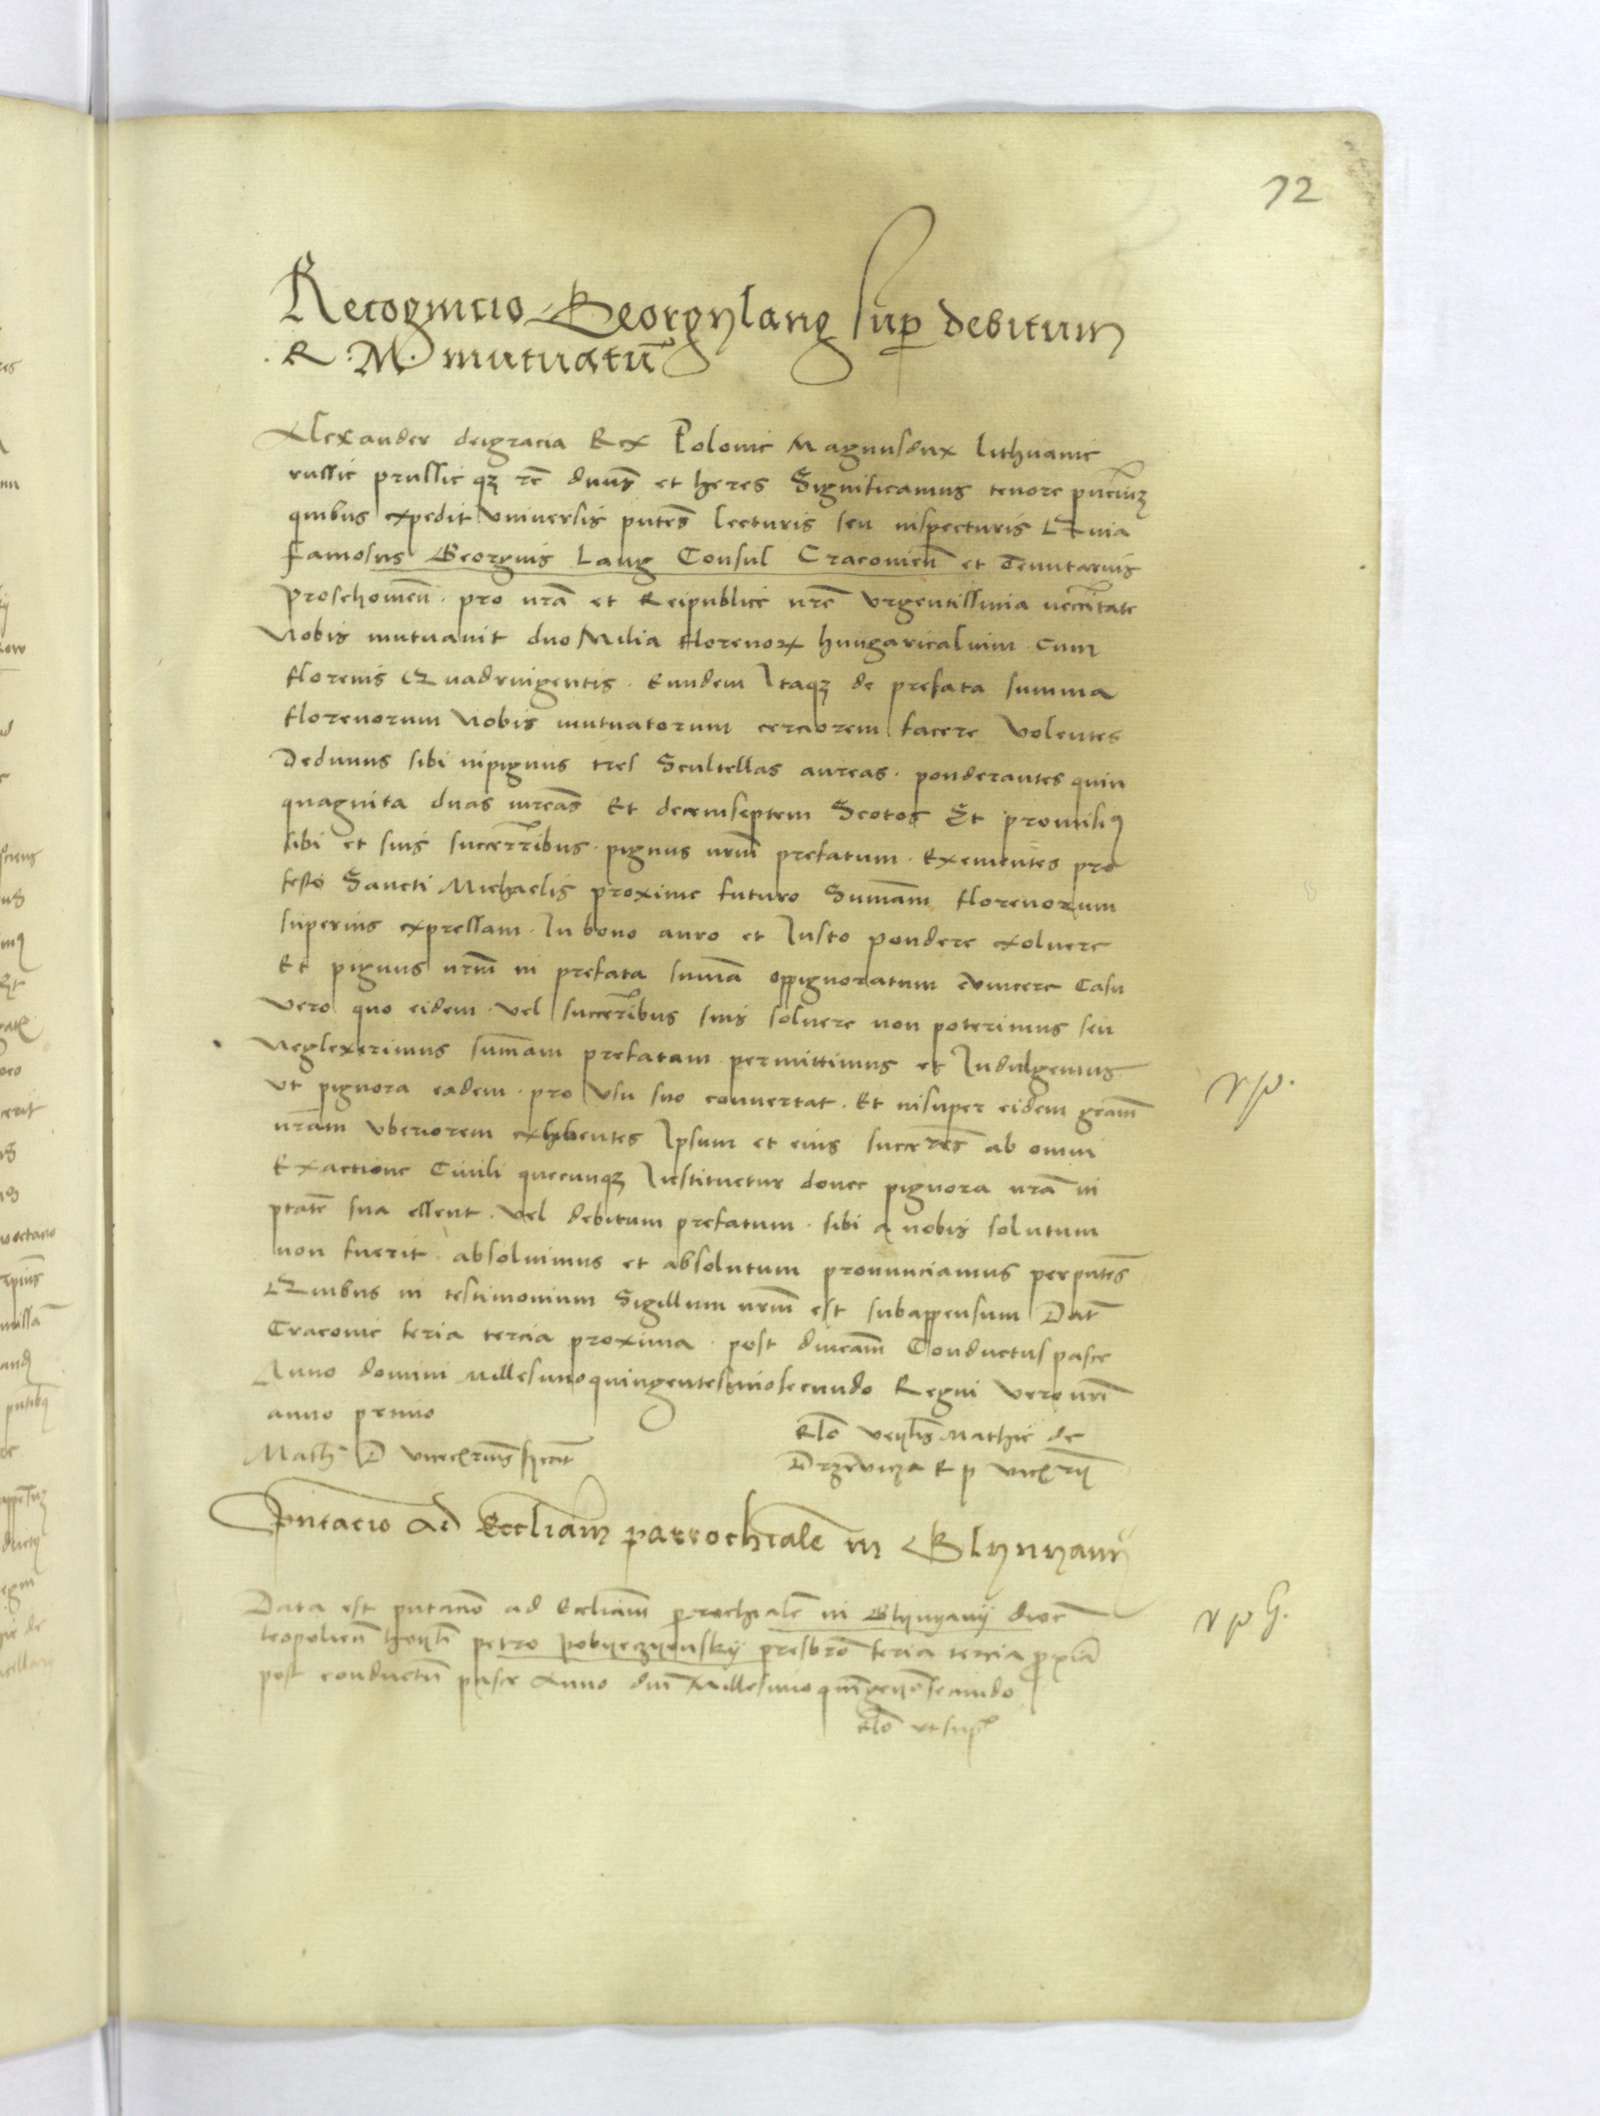 72
Recognicio Georgy lang sup debitum
R. M. mutuatu
Alexander dei gracia Rex Polonie Magnus dux Lithuanie
russie prussie qz re dnus et heres Significamus tenore pncium
quibus expedit vniversis pntes lecturis seu inspecturis Quia
famosus Georgius Lang Consul Cracovien et Tenutarius
proschovien. pro nra et Reipublice nre vrgentissima neccitate
Nobis mutuavit duo Milia florenor hungaricalium cum
florenis Quadringentis. Eundem Itaqz de prefata summa
florenorum Nobis mutuatorum cerciorem facere Volentes
Dedimus sibi in pignus tres Scultellas aureas. ponderantes quin
quaginta duas mrcas Et decemseptem Scotos Et promisimus
sibi et suis succerribus. pignus nrm prefatum. Exementes pro
festo Sancti Michaelis proxime futuro Summam florenorum
superius expressam. In bono auro et Iusto pondere exoluere
Et pignus nrm in prefata summa oppignoratum eximere Casu
vero quo eidem vel succeribus suis soluere non poterimus seu
Neglexerimus summam prefatam permittimus et Indulgemus
vt pignora eadem. pro vsu suo convertat. Et insuper eidem gram
nram vberiorem exhibentes Ipsum et eius succres ab omni
Exactione Civili quecunqz Instituetur donec pignora nra in
ptate sua essent. Vel debitum prefatum. sibi a nobis solutum
non fuerit absoluimus et absolutum pronunciamus per pntes
Quibus in testimonium Sigillum nrm est subappensum Dat
Cracovie feria tercia proxima. post dnicam Conductus pasce
Anno domini Millesimoquingentesimosecundo Regni Vero nri
anno primo
Math D vicecrius ssct
Rlo Mathie de
Drzevicza R p vicrii
r p.
pntacio ad Eccliam parrochiale in Glynyany
Data est pntacio ad Eccliam prochiale in Glynyany dioc
leopolien petro pobyeczyensky presbro feria tercia proxia
post conductu pasce Anno dni Millesimo quingen secundo
Rlo vt sup
r p G.